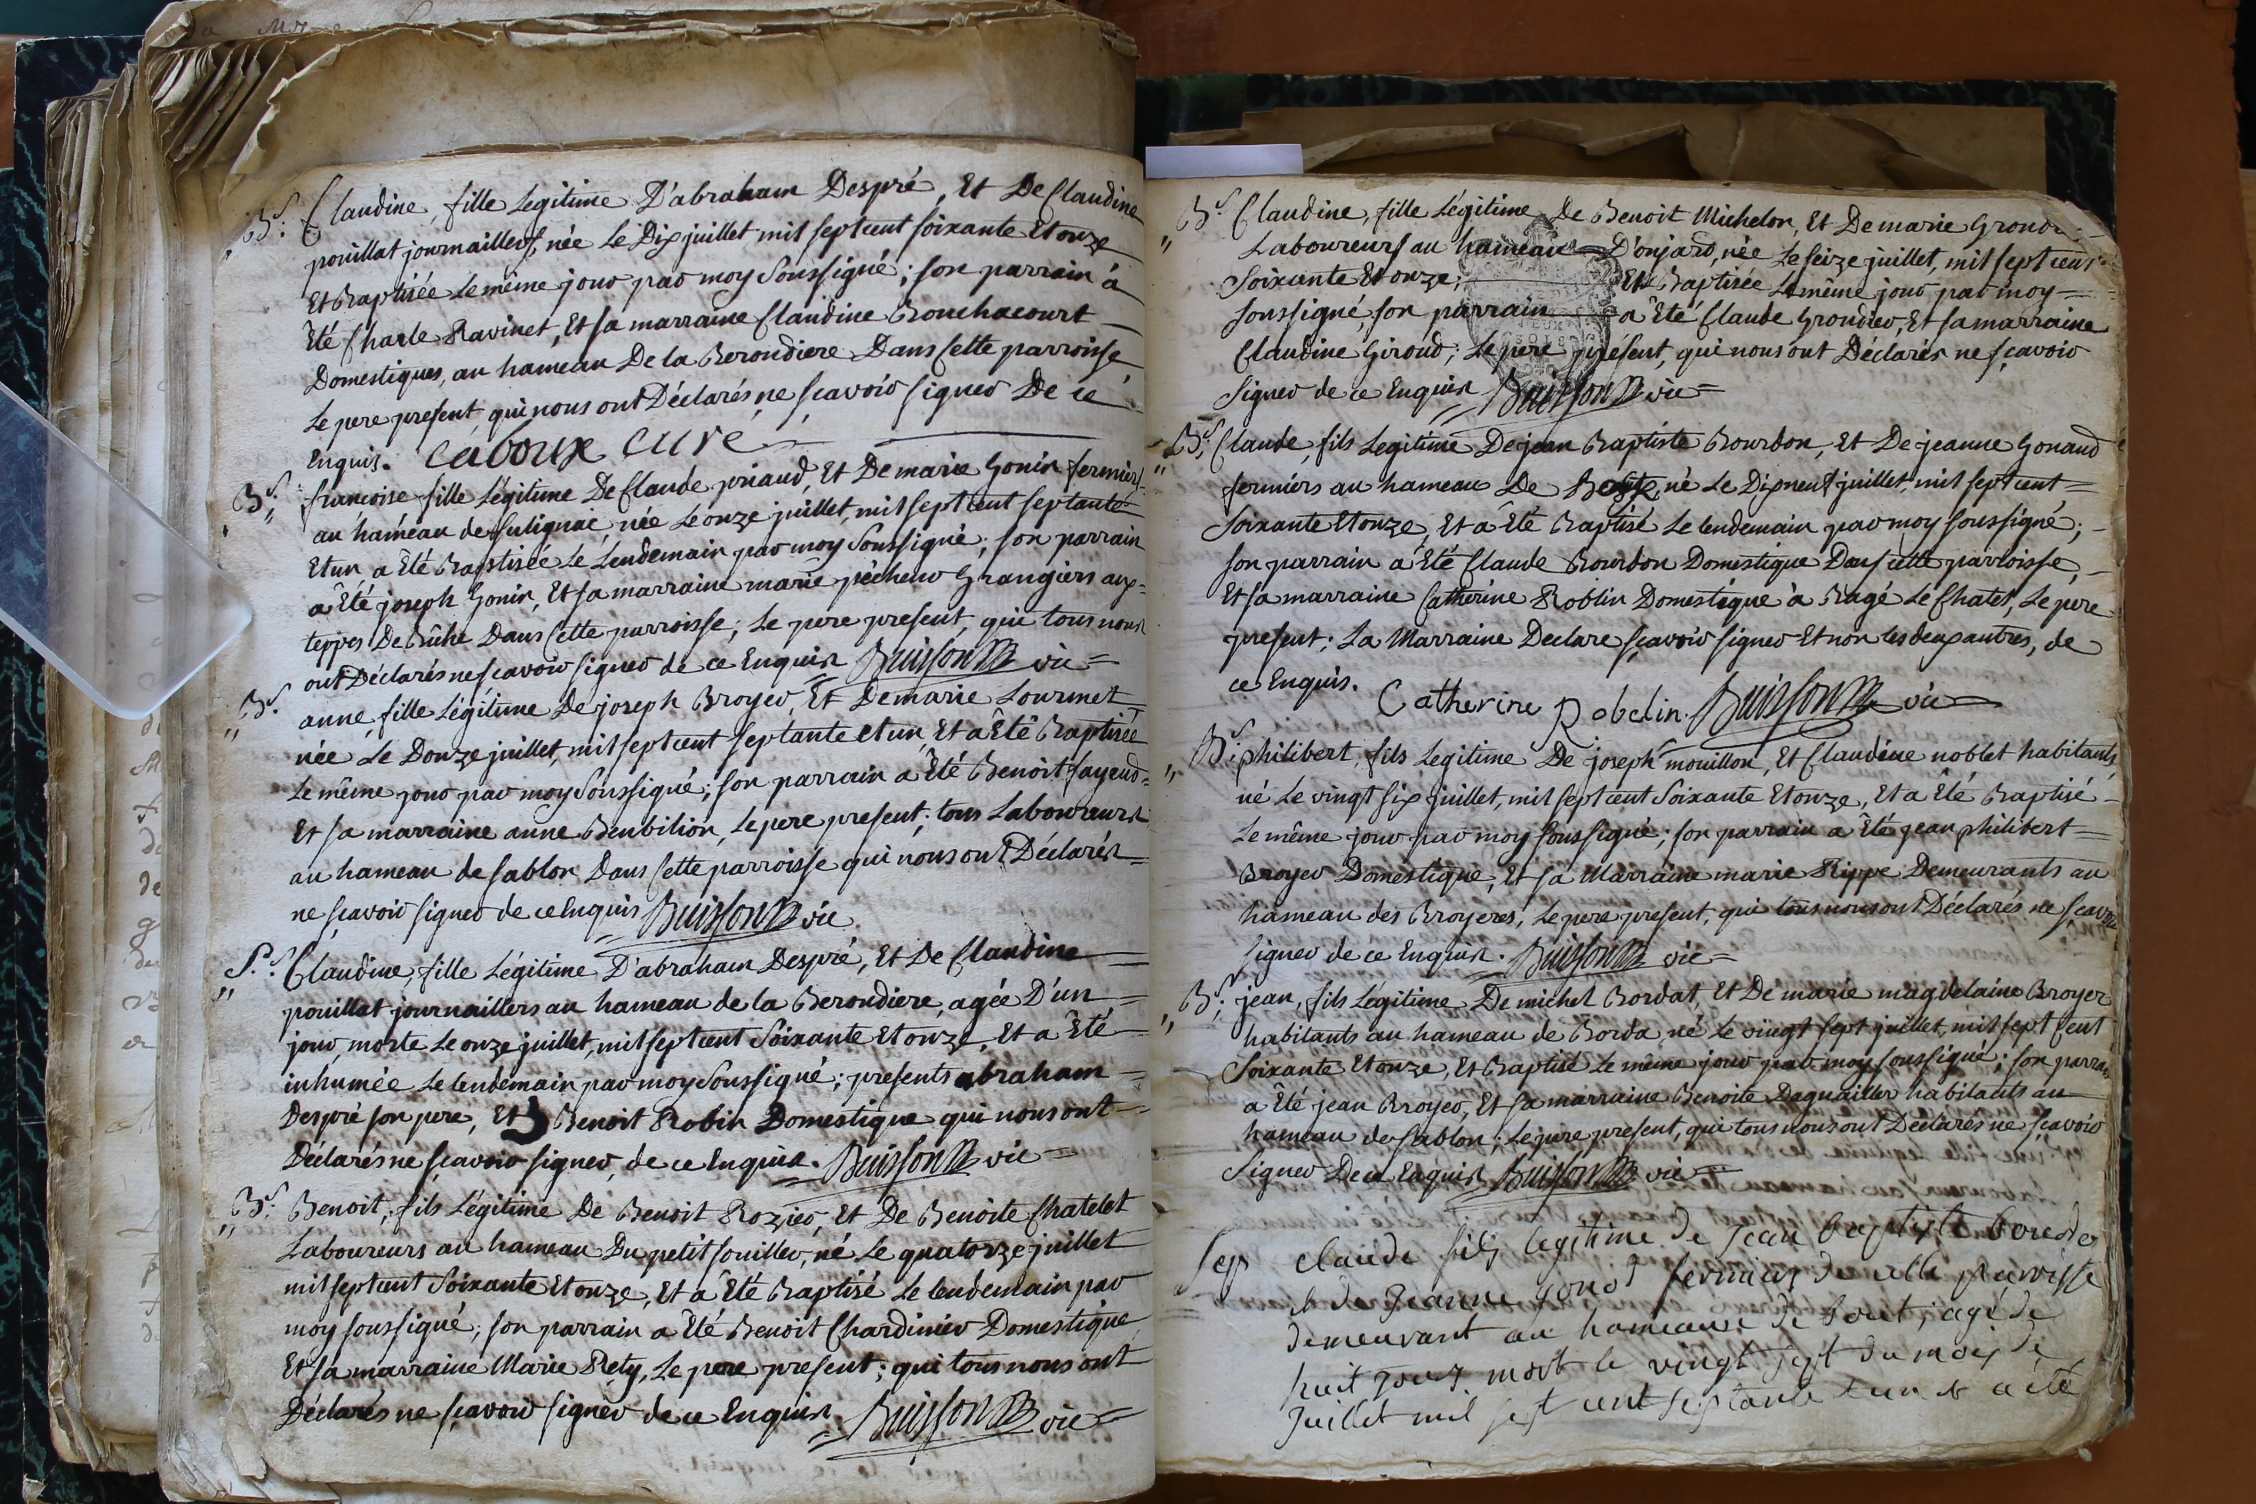 Bs. Claudine, fille Legitime D'abraham Despré, Et De Claudine
pouillat journailliers, née Le Dix juillet mil sept cent soixante Et onze
Et Baptisée Le même jour par moy Soussigné; son parrain à
Eté Charle Ravinet, Et sa marraine Claudine Bouchacourt
Domestiques, au hameau De la Berondiere Dans Cette parroisse,
Le pere present, qui nous ont Déclarés ne sçavoir signer De ce
Enquis. Laboux curé
Bs. françoise fille Légitime De Claude priaud, Et De marie Gonin fermiers
au hameau de Sulignat, née Le onze juillet, mil sept cent septante
Et un a Eté Baptisée Le Lendemain par moy Soussigné; son parrain
a Eté joseph Gonin, Et sa marraine marie pêcheur Grangiers aux
teppes De Bûhe Dans Cette parroisse; Le pere present, qui tous nous
ont Déclarés ne sçavoir signer de ce Enquis Buisson vic
Bs. anne, fille Légitime De joseph Broyer, Et De marie Lourmet
née Le Douze juillet, mil sept cent septante et un, Et a Eté Baptisée
Le même jour par moy Soussigné; son parrain a Eté Benoit
Et sa marraine anne Benbilion, Le pere present; tous Laboureurs
au hameau de Sablon Dans Cette parroisse qui nous ont Déclarés
ne sçavoir signer de ce Enquis Buisson vic
S. Claudine, fille Légitime D'abraham Despré, Et De Claudine
pouillat journailliers au hameau de la Berondiere, agée D'un
jour, morte Le onze juillet, mil sept cent Soixante Et onze, Et a Eté
inhumée Le lendemain par moy Soussigné; presents abraham
Despré son pere, Et Benoit Robin Domestique qui nous ont
Déclarés ne sçavoir signer, de ce Enquis. Buisson vic
Bs. Benoit, fils Légitime De Benoit Rozier, Et De Benoite Chatelet
Laboureurs au hameau Du petit souiller, né Le quatorze juillet
mil sept cent Soixante Et onze, Et a Eté Baptisé Le lendemain par
moy soussigné; son parrain a Eté Benoit Chardinier Domestique
Et sa marraine Marie Rety, Le pere present; qui tous nous ont
Déclarés ne sçavoir signer de ce Enquis Buisson vic
Bs. Claudine, fille Légitime De Benoit Michelon, Et De marie
Laboureurs au hameau D'onjard, née Le seize juillet, mil sept cent
Soixante Et onze; Et Baptisée Le même jour par moy
soussigné, son parrain a Eté Claude Grondier, Et sa marraine
Claudine Giroud; Le pere présent, qui nous ont Déclarés ne sçavoir
signer de ce Enquis Buisson vic
Bs. Claude, fils Legitime De jean Baptiste Bourdon, Et De jeanne Gonaud
fermiers au hameau De né Le Dix neuf juillet, mil sept cent
Soixante Et onze, Et a Eté Baptisé Le lendemain par moy soussigné;
son parrain a Eté Claude Bourdon Domestique Dans cette parroisse,
Et sa marraine Cathérine Roblin Domestique à Bagé Le Chatel, Le pere
present; La Marraine Declare sçavoir signer Et non les deux autres, de
ce Enquis. Catherine Robelin Buisson vic
Bs. philibert, fils Legitime De joseph mouillon, Et Claudine noblet habitants,
né Le vingt six juillet, mil sept cent Soixante Et onze, Et a Eté Baptisé
Le même jour par moy soussigné; son parrain a Eté jean philibert
Broyer Domestique, Et sa Marraine marie Rippe Demeurants au
hameau des Broyeres, Le pere present, qui tous nous ont Déclarés ne sçavoir
signer de ce Enquis. Buisson vic
Bs. jean, fils Légitime De michel Bordat, Et De marie magdelaine Broyer
habitants au hameau de Borda né Le vingt sept juillet, mil sept cent
Soixante Et onze, Et Baptisé Le même jour par moy soussigné; son parrain
a Eté jean Broyer, Et sa marraine Benoite Daguaillier habitants au
hameau de Sablon; Le pere present, qui tous nous ont Déclarés ne sçavoir
signer De ce Enquis Buisson vic
Sep claude fils legitime de jean baptiste bourdon
et de jeanne gonod fermiers de cette parroisse
demeurant au hameaux de bout, agé de
huit jours mort le vingt sept du mois de
juillet mil sept cent septante et un et a été